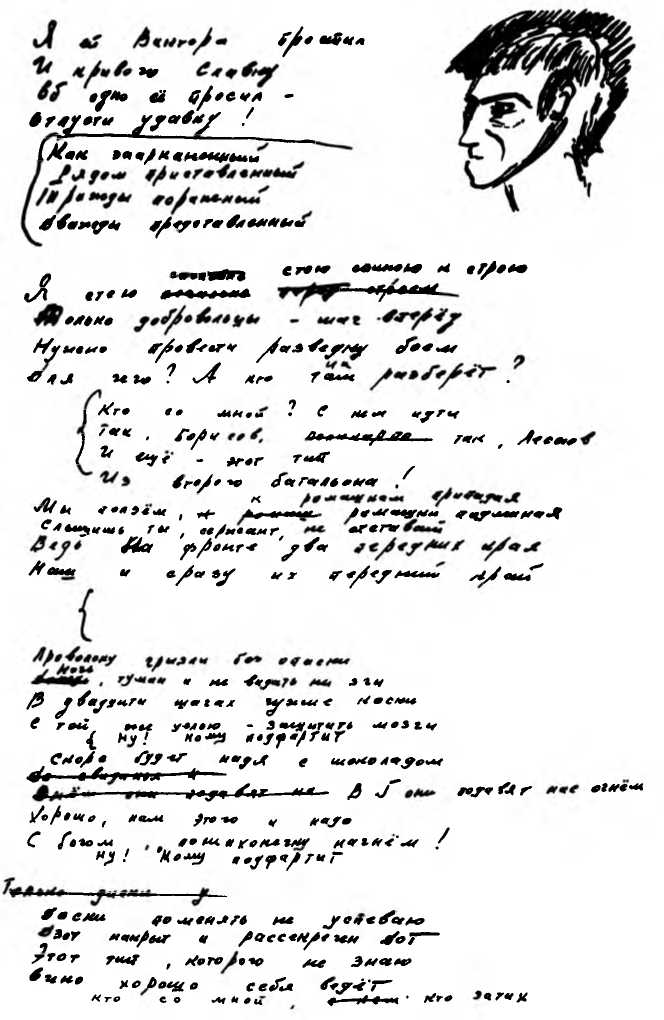 Я ей Виктора простил
И кривого Славку
Об одно ей просил -
Отпусти удавку!
Как заарканенный
Рядом приставленный
Трижды пораненый
Дважды представленный
стою спиною к строю
Я стою
Только добровольцы - шаг вперёд
Нужно провести разведку боем
Для чего? А кто там разберёт?
Кто со мной? С кем идти
Так, Борисов, так, Леонов
И ещё - этот тип
Из второго батальона!
к ромашкам припадая
Мы ползём, к ромашки
Слышишь ты, сержант, не отставай
Ведь на фронте два передних края
Наш и сразу их передний край
Проволоку грызли без опаски
Ночь, туман и не видать ни зги
В двадцати шагах чужие каски
С той же целью - защитить мозги
Ну! Кому подфартит
Скоро будет Надя с шоколадом
В 6 они подавят нас огнём
Хорошо, нам этого и надо
С богом, потихонечку начнём!
Ну! Кому подфартит
Только диски
Диски поменять не успеваю
Дзот накрыт и рассекречен дот
Этот тип, которого не знаю
Очень хорошо себя ведёт
Кто со мной, с кем кто затих